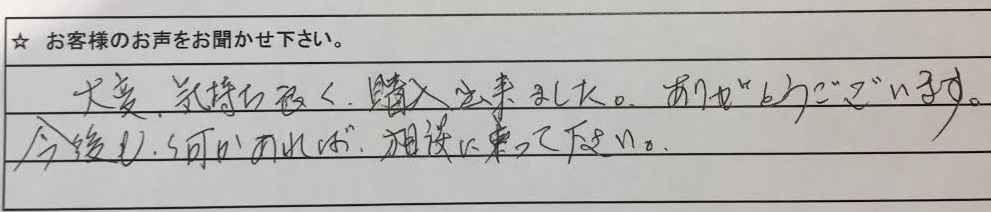 ☆ お客様のお声をお聞かせ下さい。
大変、気持ち良く、購入出来ました。ありがとうございます。
今後も、何かあれば、相談に乗って下さい。